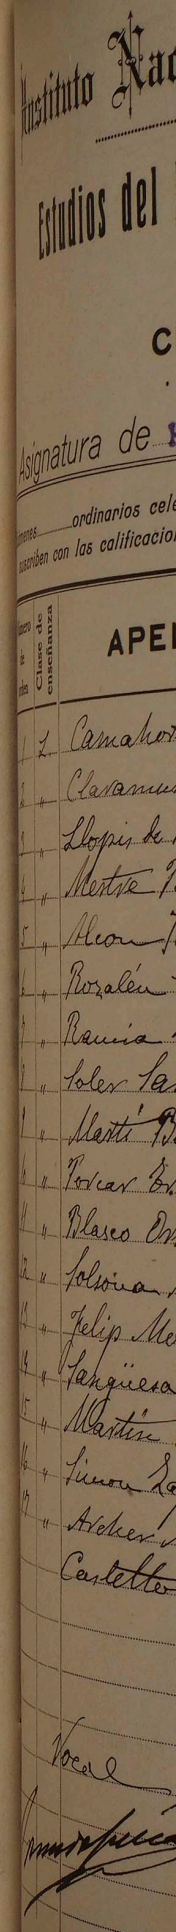 Instituto Nac
Estudios del
C
Asignatura de
ordinarios cele
suscriben con las calificacion
Clase de enseñanza
APE
1 L Camahor
2 " Claramun
3 " Llopis de
4 " Mestre
5 " Alcon
6 " Rozalén
7 " Ramia
8 " Soler Sa
9 " Martí B
10 " Porcar
11 " Blasco
12 " Solsona
13 " Felip Mo
14 " Sangüesa
15 " Martín
16 " Simon
17 " Archer
Castelló
Vocal